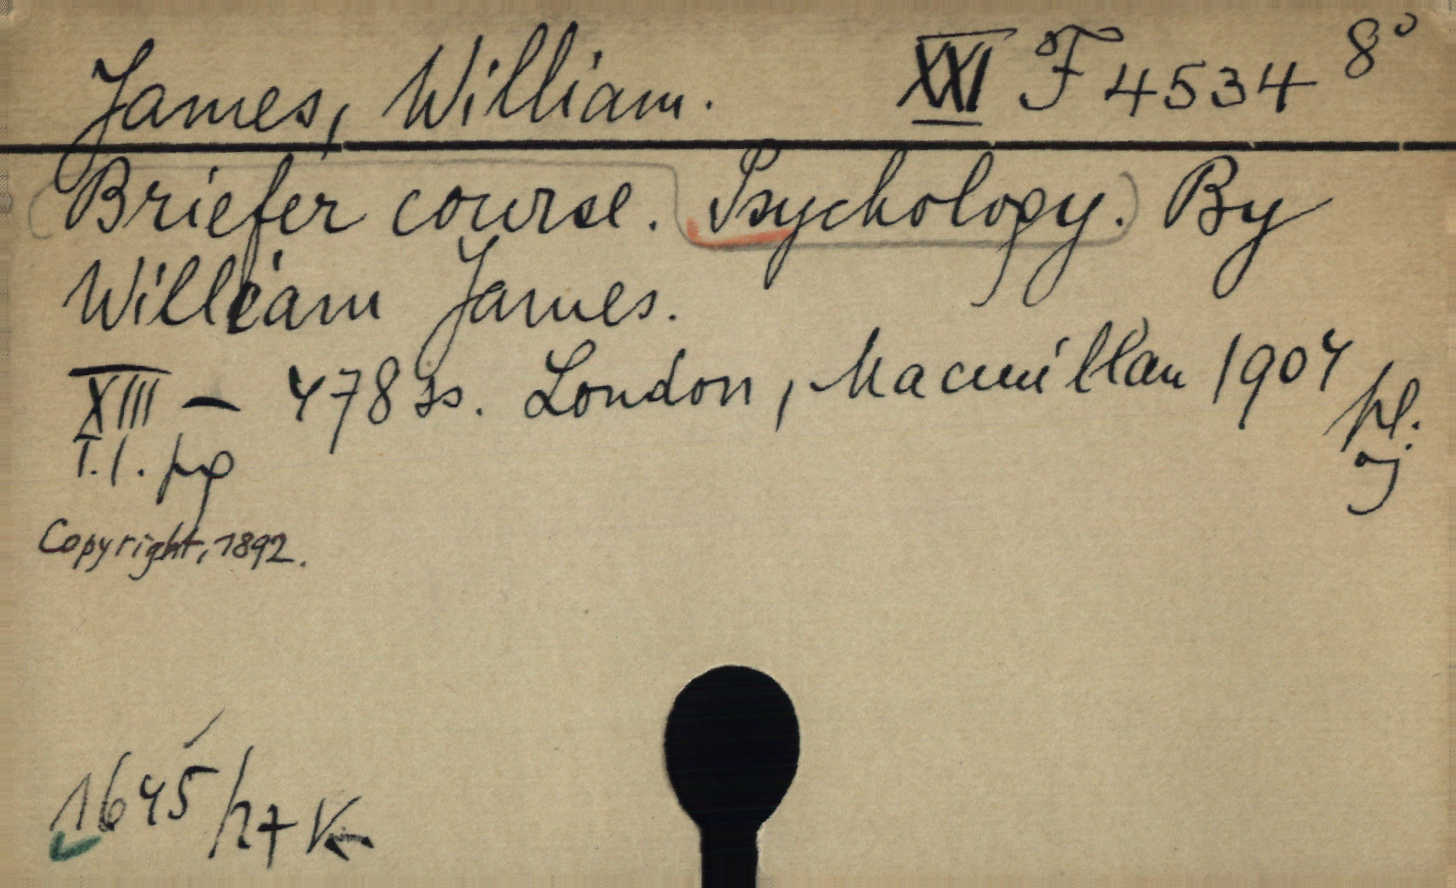 James, William. XXI F 4534 8°
Briefer course. Psychology. By
William James.
XIII — 478 ss. London, Macmillan 1904
T. 1. pg pl.
Copyright, 1892.
1645